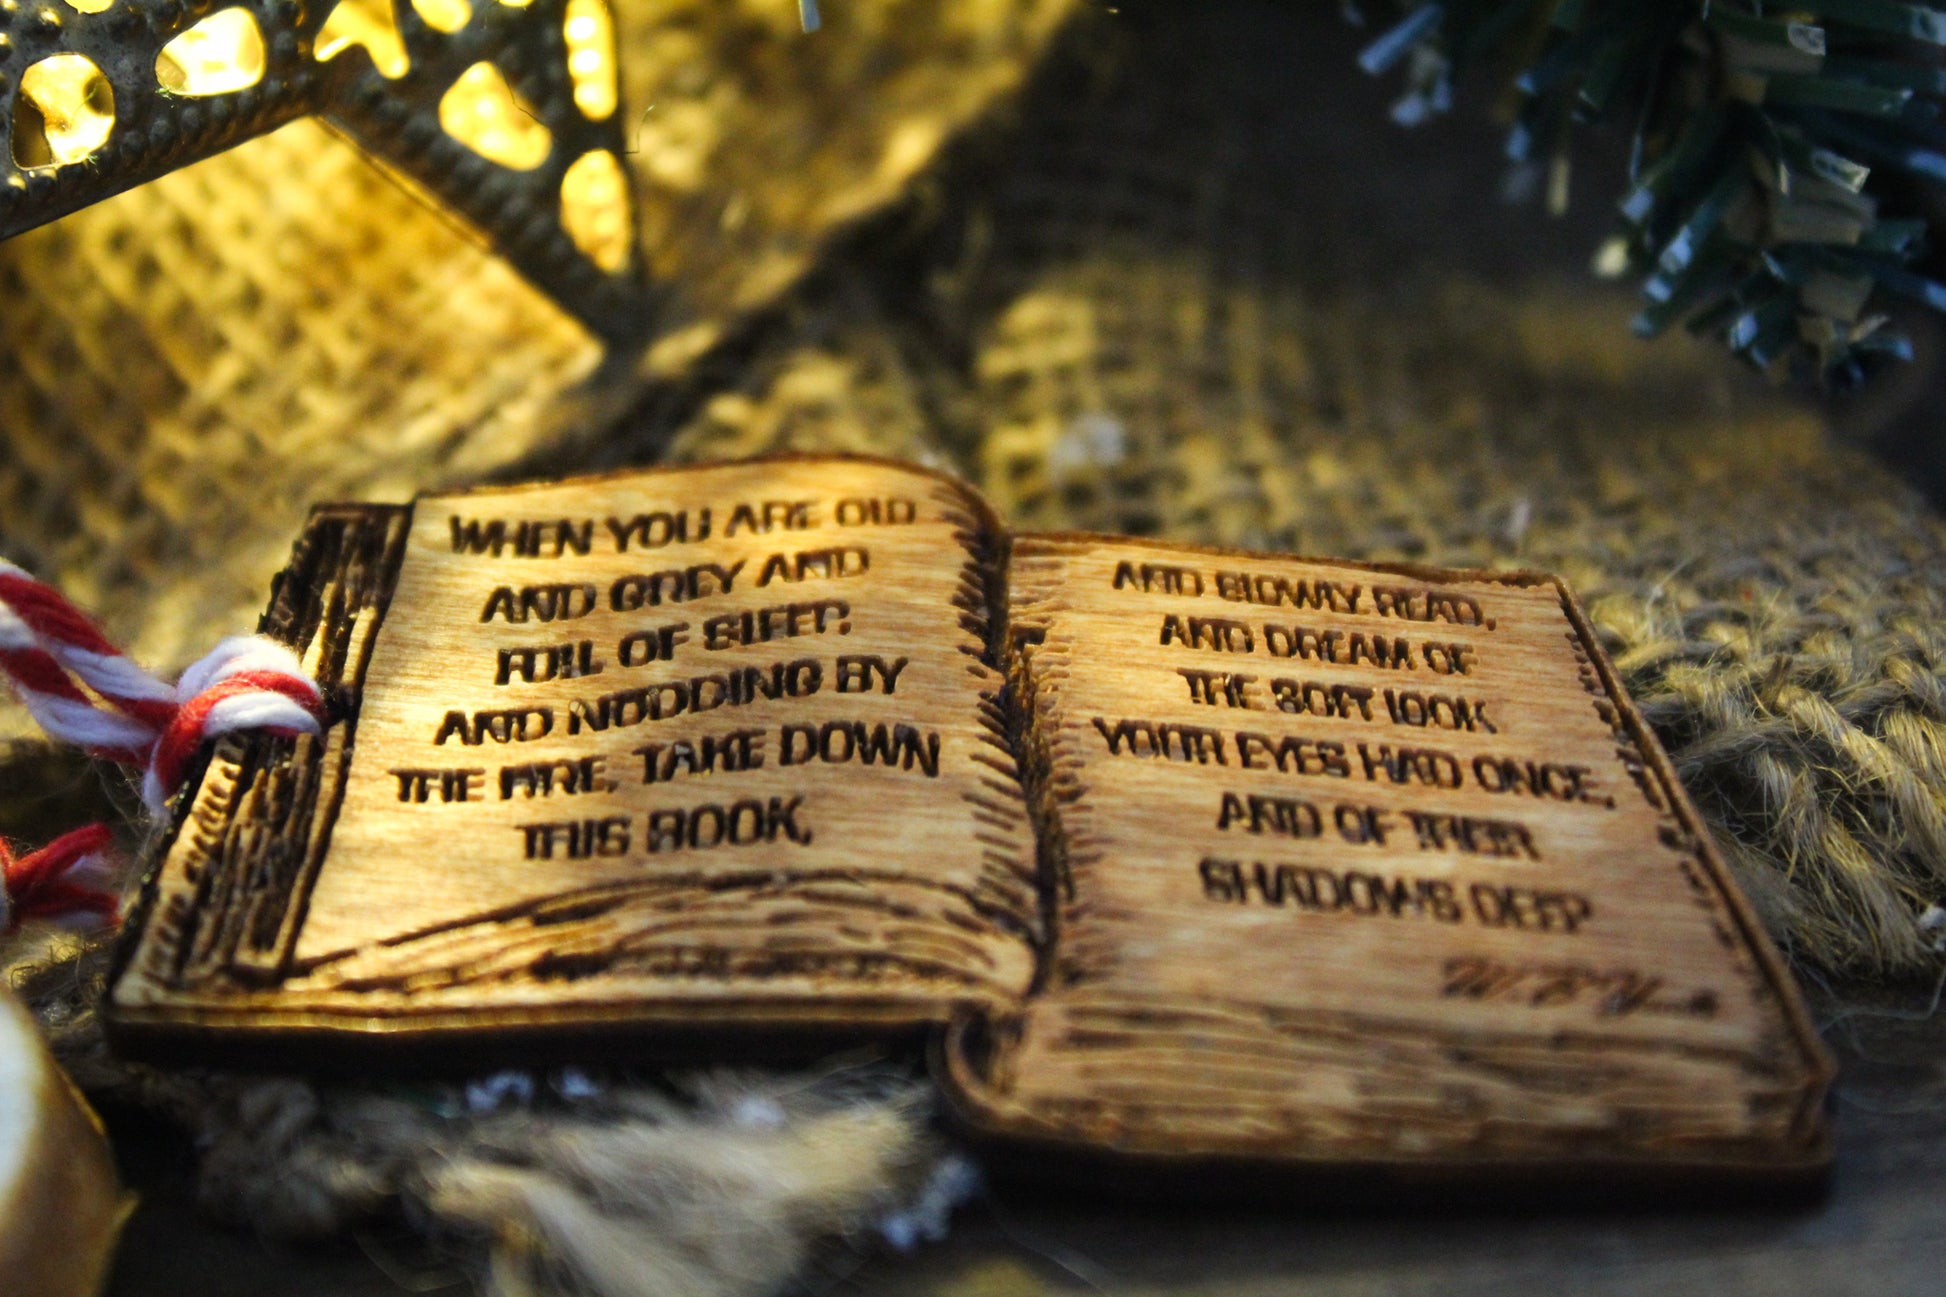 WHEN YOU ARE OLD
AND GREY AND
FULL OF SLEEP,
AND NODDING BY
THE FIRE, TAKE DOWN
THIS BOOK,
AND SLOWLY READ,
AND DREAM OF
THE SOFT LOOK
YOUR EYES HAD ONCE,
AND OF THEIR
SHADOWS DEEP
W.B.Yeats